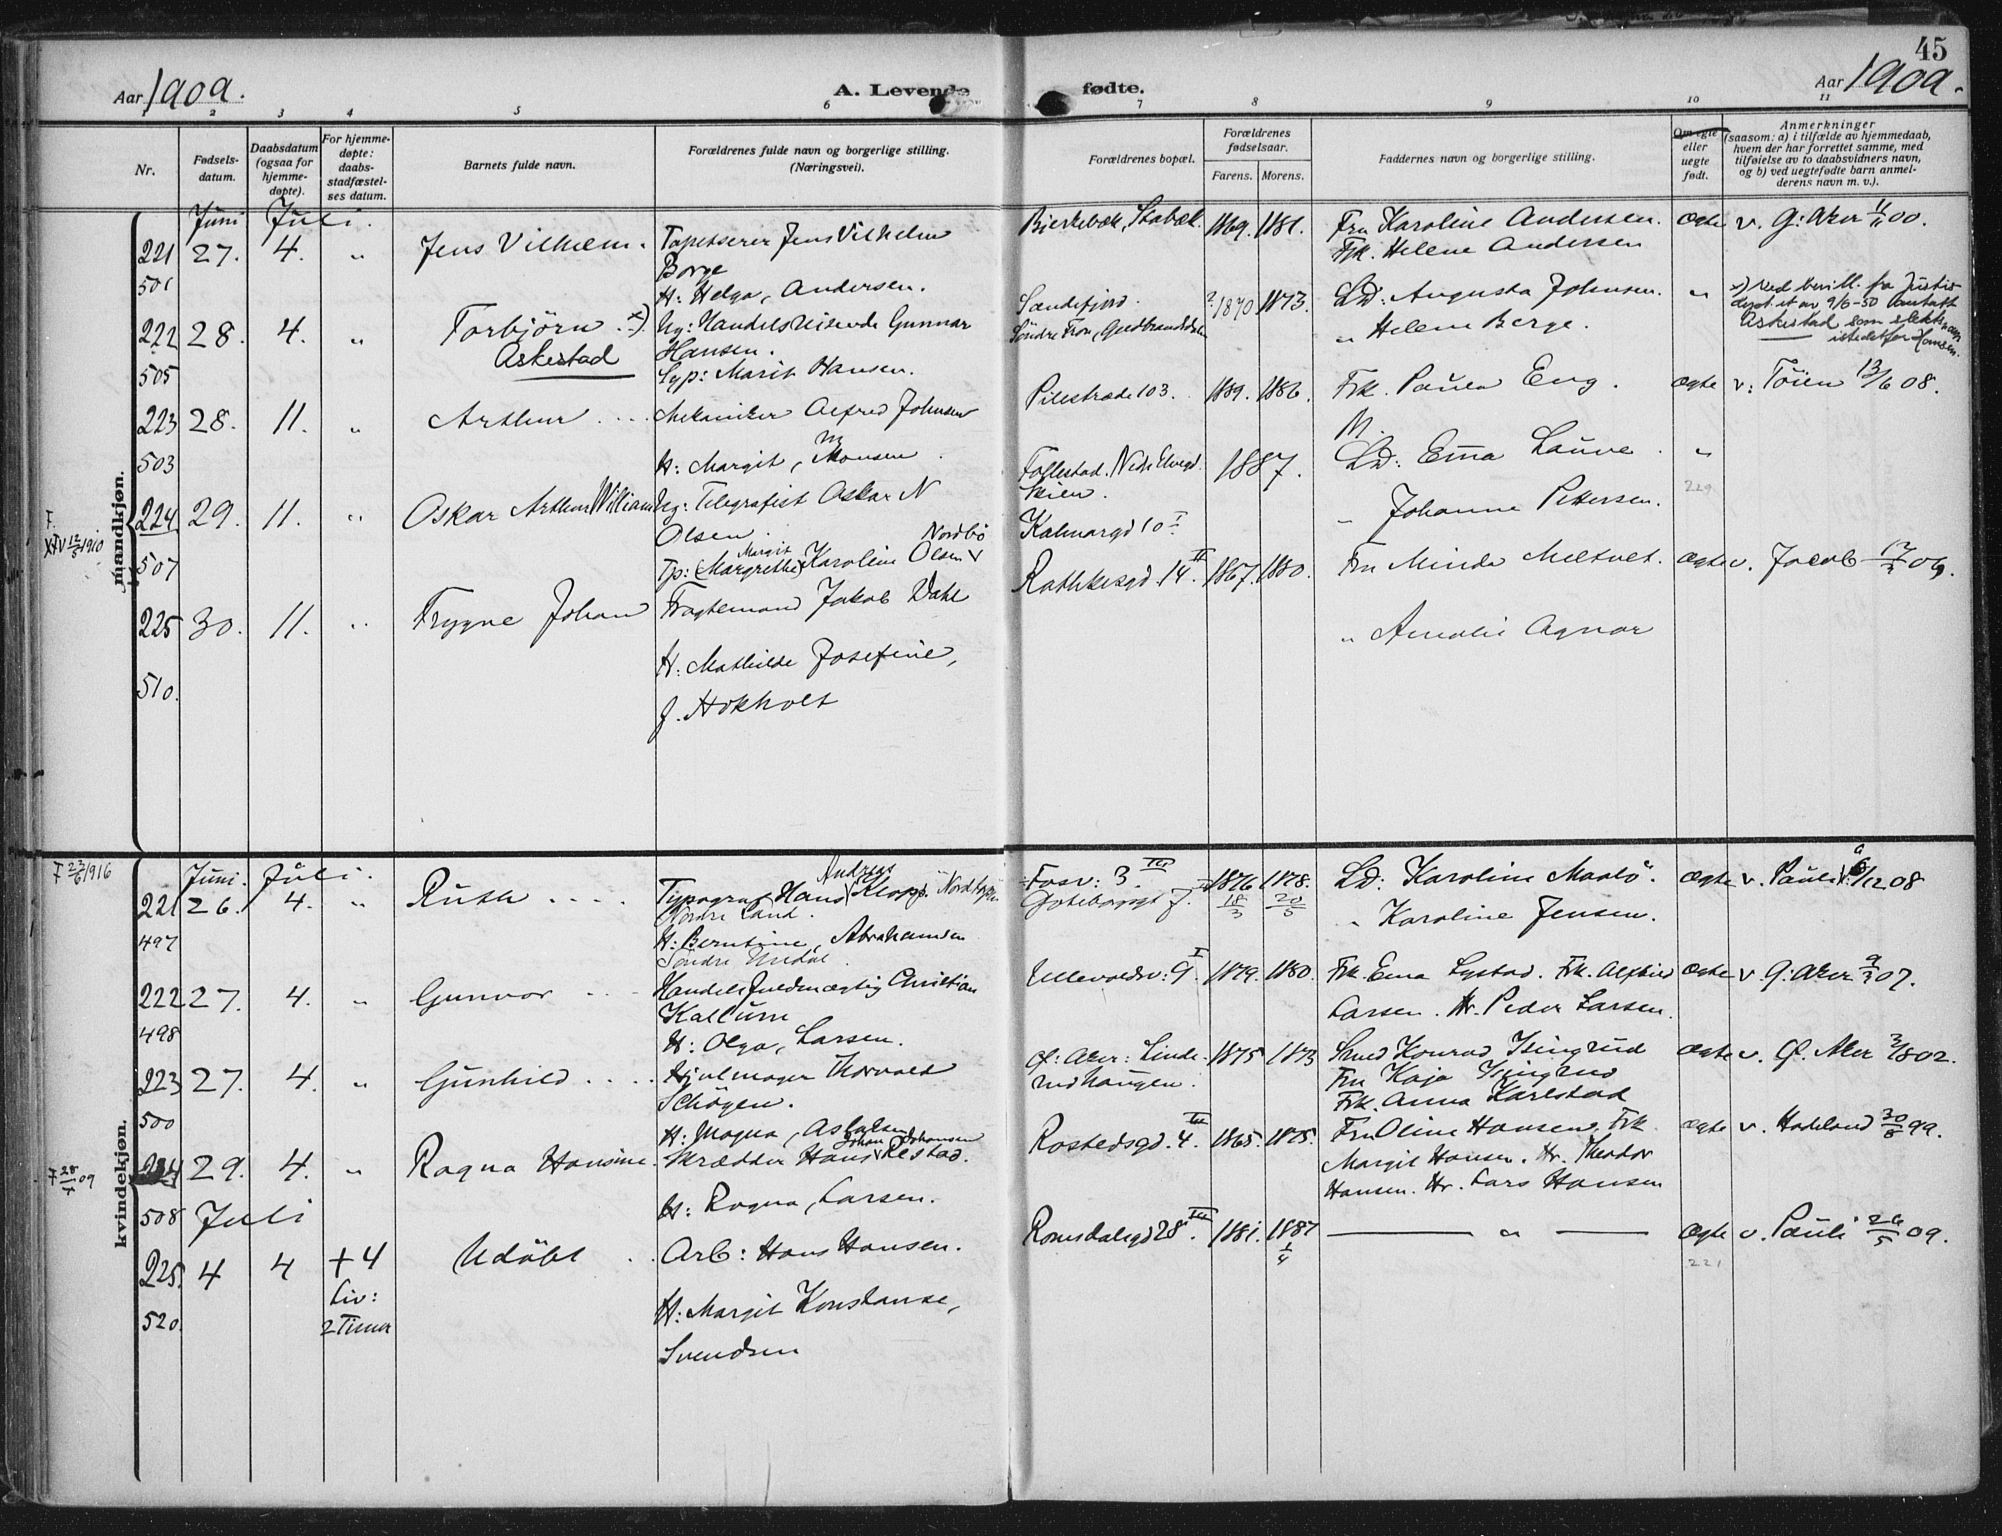 45
Aar 1909.
A. Levende fødte.
Aar 1909.
1 2 3 4 5 6 7 8 9 10 11
Nr.
Fødsels-
datum.
Daabsdatum
(ogsaa for
hjemme-
døpte).
For hjemme-
døpte:
daabs-
stadfæstel-
ses datum.
Barnets fulde navn.
Forældrenes fulde navn og borgerlige stilling.
(Næringsvei).
Forældrenes bopæl.
Forældrenes
fødselsaar.
Farens. Morens.
Faddernes navn og borgerlige stilling.
Om egte
eller
uegte
født.
Anmerkninger
(saasom: a) i tilfælde av hjemmedaab,
hvem der har forrettet samme, med
tilføielse av to daabsvidners navn,
og b) ved uegtefødte barn anmel-
derens navn m. v.).
mandkjøn.
Juni Juli.
221 27. 4. " Jens Vilhelm. Tapetserer Jens Vilhelm
Borge
H: Helga, Andersen.
501
Bierkebæk, Stabæk. 1869. 1881. Fru Karoline Andersen. Ægte v. G: Aker 11/11 00.
Frk. Helene Andersen
222 28. 4. " Torbjörn x)
Askestad
Ug: Handelsreisende Gunnar
Hansen.
Syp: Marit Hansen.
505
Sandefjord. ? 1870 1873. Ld: Augusta Johnsen. "
Söndre Fron, Gudbrandsdalen
" Helene Berge.
x) Ved bevill. fra Justis
dept. et av 9/6-50 antatt
Askestad som slektsnavn
istedetfor Hansen.
223 28. 11. " Arthur Mekaniker Alfred Johnsen
H: Margit, Monsen
503
Pilestræde 103. 1889. 1886. Frk. Paula Eng. Ægte v: Töien 13/6 08.
M.
F.
XIV 12/5 1910
224 29. 11. " Oskar Arthur William Ug: Telegrafist Oskar N
Olsen.
Nordbö
Margit
Tp: (Margrethe) Karoline Olsen
507
Follestad. Nedre Elvegd.
Skien.
1887. Ld: Ema Lauve. "
229
" Johanne Pettersen.
Kalmargd 10 I
225 30. 11. " Trygve Johan Fragtemand Jakob Dahl
H: Mathilde Josefine,
f. Hokholt
510.
Rathkesgd. 14 II. 1867. 1880. Fru Minda Meltvet. Ægte v. Jacob 12/3 09.
" Amalie Agnar
kvindekjøn.
F 23/6 1916
Juni. Juli.
221 26. 4. " Ruth Typograf Hans Andreas Klopp. Nordtoppen
Nordre Land.
H: Berntine, Abrahamsen
Söndre Undal.
497
Fosv: 3. III
Göteborggt 7.
1876 18/3 1878. 20/5 Ld: Karoline Maalö. Ægte v. Pauli 6/12 08
" Karoline Jensen.
222 27. 4. " Gunvor Handelsfuldmægtig Christian
Kallum
H: Olga, Larsen.
498
Ullevoldsv: 9 I. 1879. 1880. Frk. Ema Lystad. Frk. Alfhild Ægte v. G: Aker 9/3 07.
Larsen. Hr. Peder Larsen.
223 27. 4. " Gunhild Hjulmager Thorvald
Schögen.
H: Magna, Aslaksen
500
Gl: Aker: Linde-
rudhaugen.
1875 1873 Smed Konrad Isingrud Ægte v. Gl. Aker 3/8 02.
Fru Kaja Isingrud
Frk. Anna Karlstad
F 28/7 09
224 29. 4. " Ragna Hansine. Skrædder Hans Johan Johansen Restad.
H: Ragna, Larsen.
508
Rostedsgd. 4. III 1865. 1875. Fru Oline Hansen, Frk. Ægte v. Hadeland 30/8 99.
Margit Hansen. Hr. Theodor
Hansen. Hr. Lars Hansen
Juli
225. 4 4 + 4
Liv:
2 Timer
Udöbt Arb: Hans Hansen.
H: Margit Konstanse,
Svendsen
520.
Romsdalsgd 28 III. 1881. 1887 1/4 — " — Ægte v. Pauli 26/5 09.
221